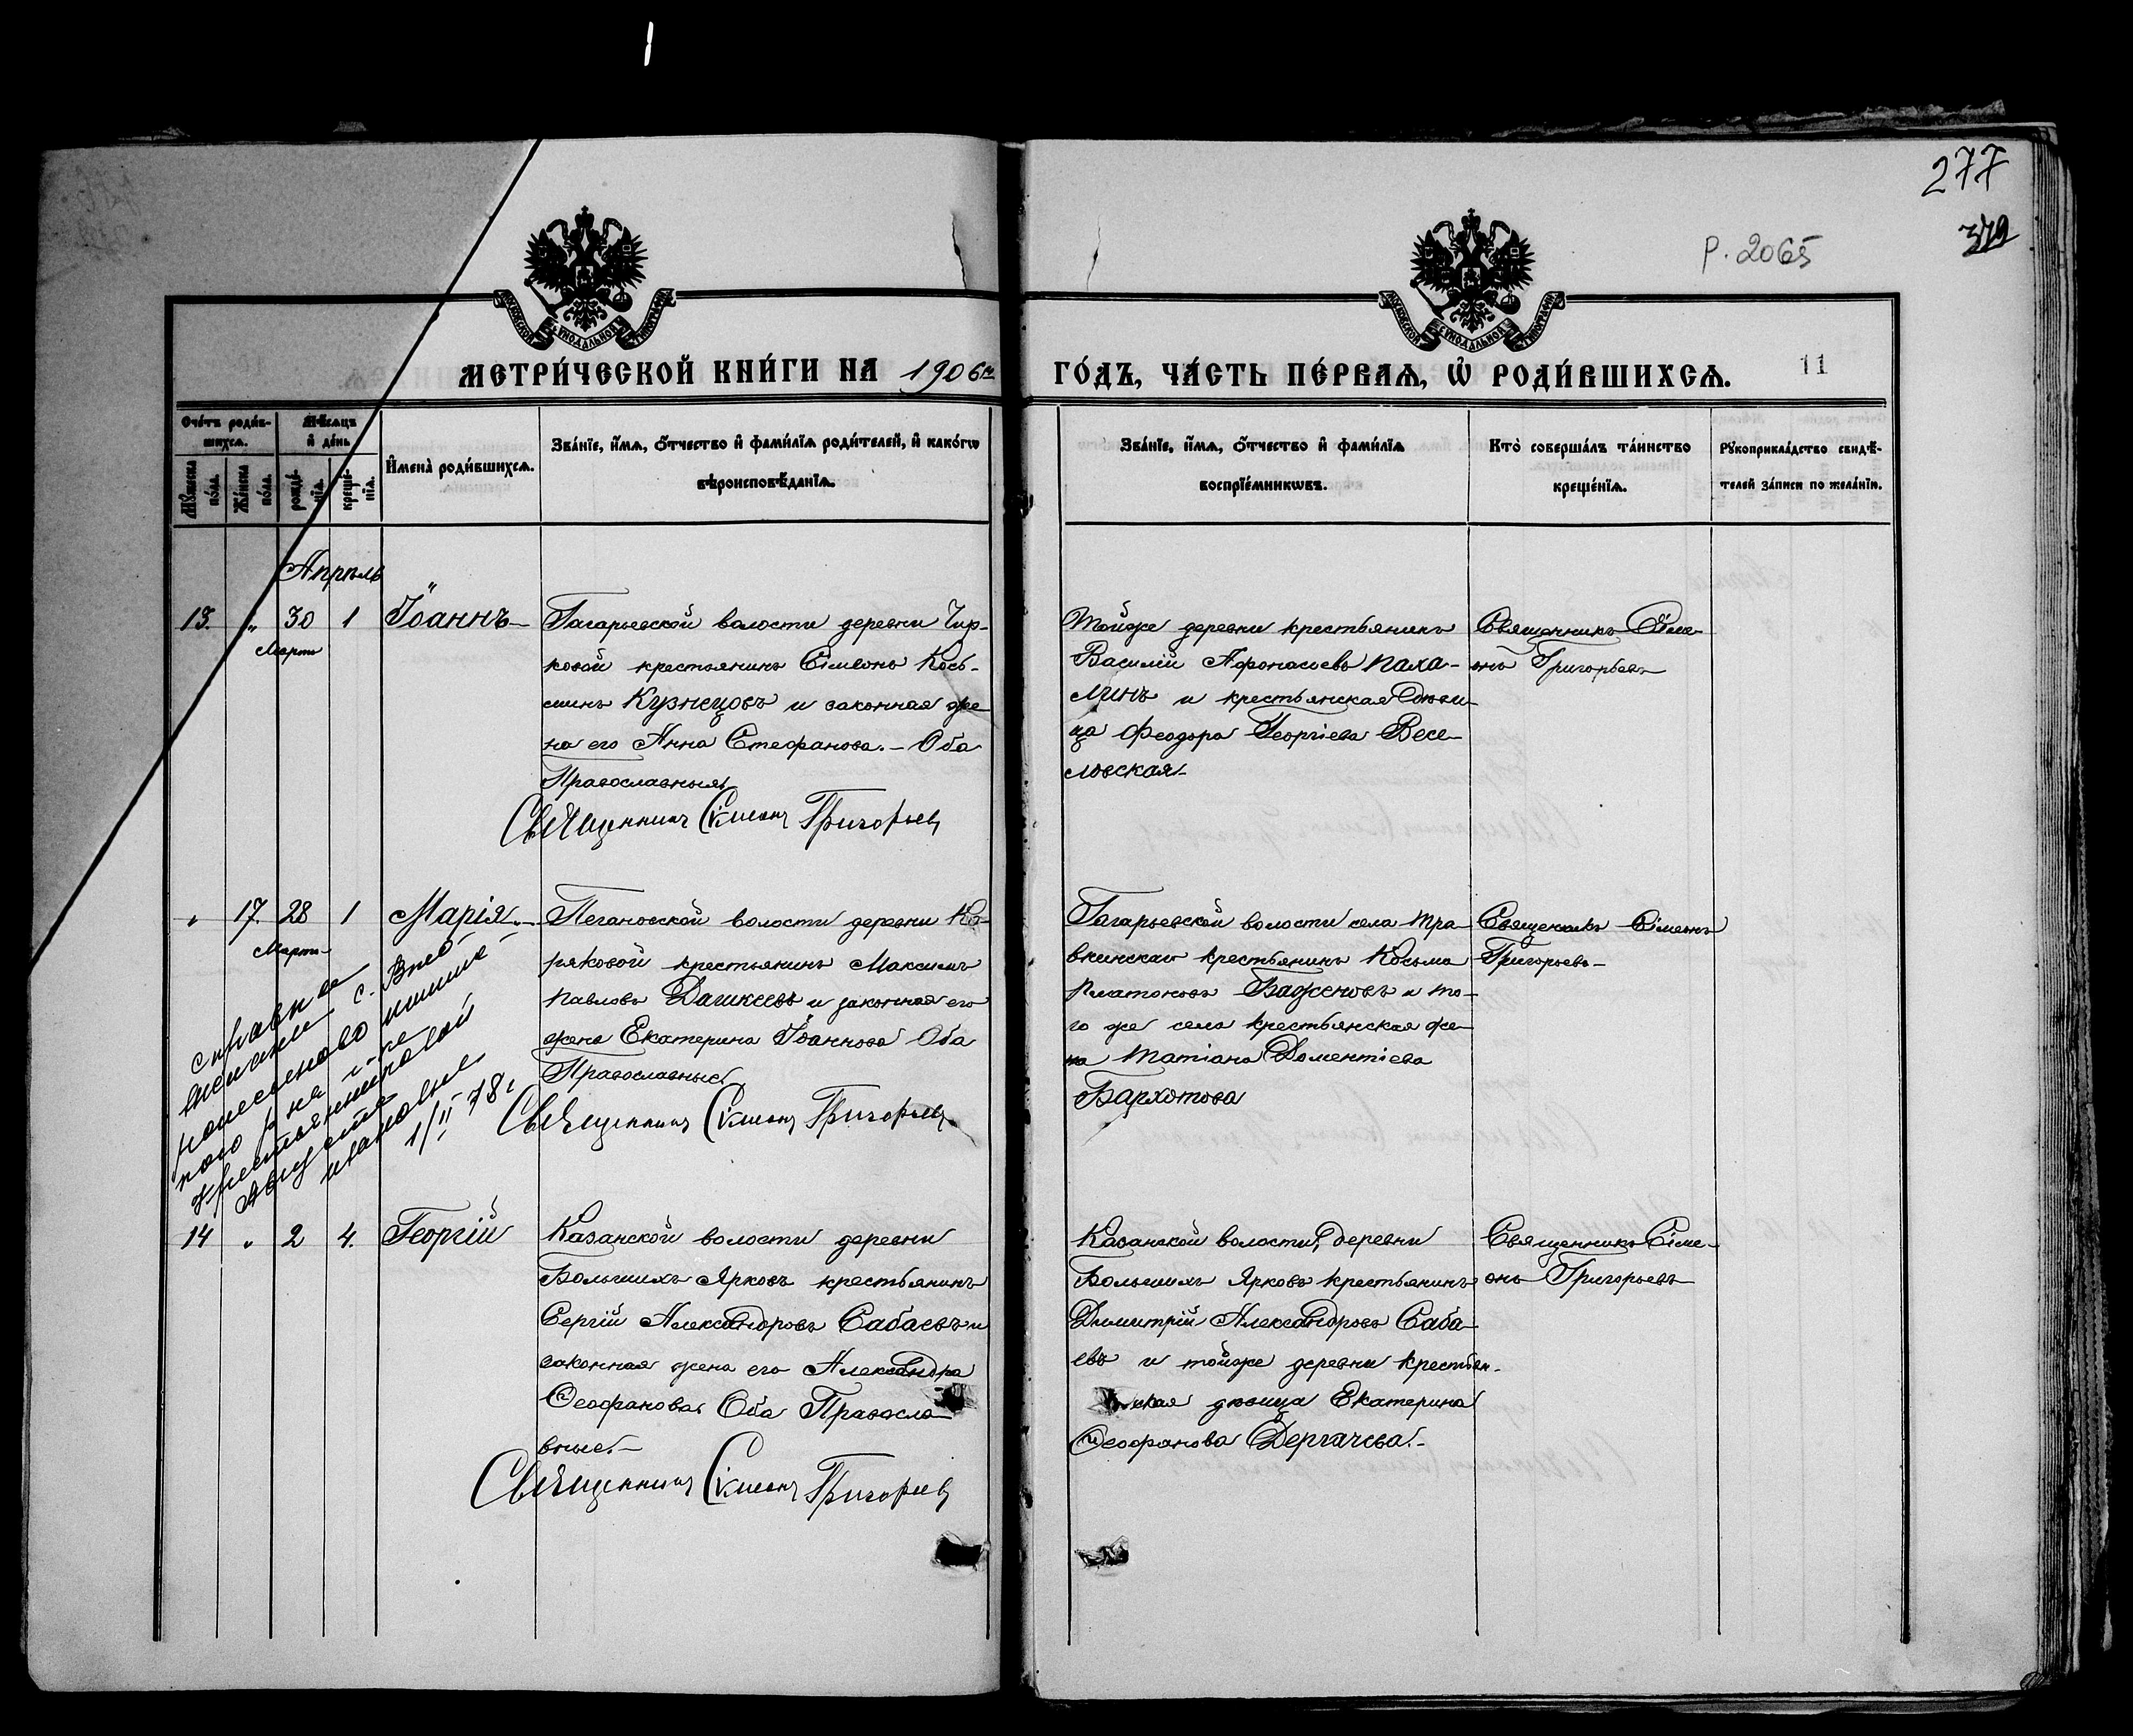 277
379
Р. 2065
МЕТРИ́ЧЕСКОЙ КНИ́ГИ НА 1906 й
ГО́ДЪ, ЧА́СТЬ ПЕ́РВАѦ, Ѡ҆ РОДИ́ВШИХСѦ.
11
Сче́тъ роди́в-
шихсѧ.
Мѣ́сѧцъ
и҆ де́нь
Мꙋ́жеска
по́ла.
Же́нска
по́ла.
рожде́-
нїѧ.
креще́-
нїѧ.
И҆мена̀ роди́вшихсѧ.
Зва́нїе, и҆́мѧ, ѻ҆́тчество и҆ фами́лїѧ роди́телей, и҆ како́гѡ
вѣроисповѣ́данїѧ.
Зва́нїе, и҆́мѧ, ѻ҆́тчество и҆ фами́лїѧ
воспрїе́мникѡвъ.
Кто̀ соверша́лъ та́инство
креще́нїѧ.
Рꙋкоприкла́дство свидѣ́-
телей за́писи по жела́нїю.
Апрѣль
13. " 30 1 Іоаннъ
Марта
Гагарьевской волости деревни Чир-
ковой крестьянинъ Сімеонъ Кось-
минъ Кузнецовъ и законная же-
на его Анна Стефанова. Оба
Православныя
Священникъ Сімеонъ Григорьевъ
Тойже деревни крестьянинъ
Василій Афонасьевъ Паха-
линъ и крестьянская дѣви-
ца Феодора Георгіева Весе-
ловская
Священникъ Сіме-
онъ Григорьевъ
" 17. 28 1 Марія
Марта
Пегановской волости деревни Ка-
ряковой крестьянинъ Максимъ
Павловъ Дашкеевъ и законная его
жена Екатерина Іоаннова Оба
Православные.
Священникъ Сімеонъ Григорьевъ
Гагарьевской волости села Тра-
вкинскаго крестьянинъ Косьма
Платоновъ Баженовъ и то-
го же села крестьянская же-
на Татіана Доментіева
Бархотова
Священникъ Сімеонъ
Григорьевъ
1/II 78 г
14 " 2 4. Георгій
Казанской волости деревни
Большихъ Ярковъ крестьянинъ
Сергій Александровъ Сабаевъ и
законная жена его Александра
Феофанова Оба Правосла-
вные.
Священникъ Сімеонъ Григорьевъ
Казанской волости, деревни
Большихъ Ярковъ крестьянинъ
Димитрій Александровъ Саба-
евъ и тойже деревни крестьян-
ская дѣвица Екатерина
Феофанова Дергачева.
Священникъ Сіме-
онъ Григорьевъ